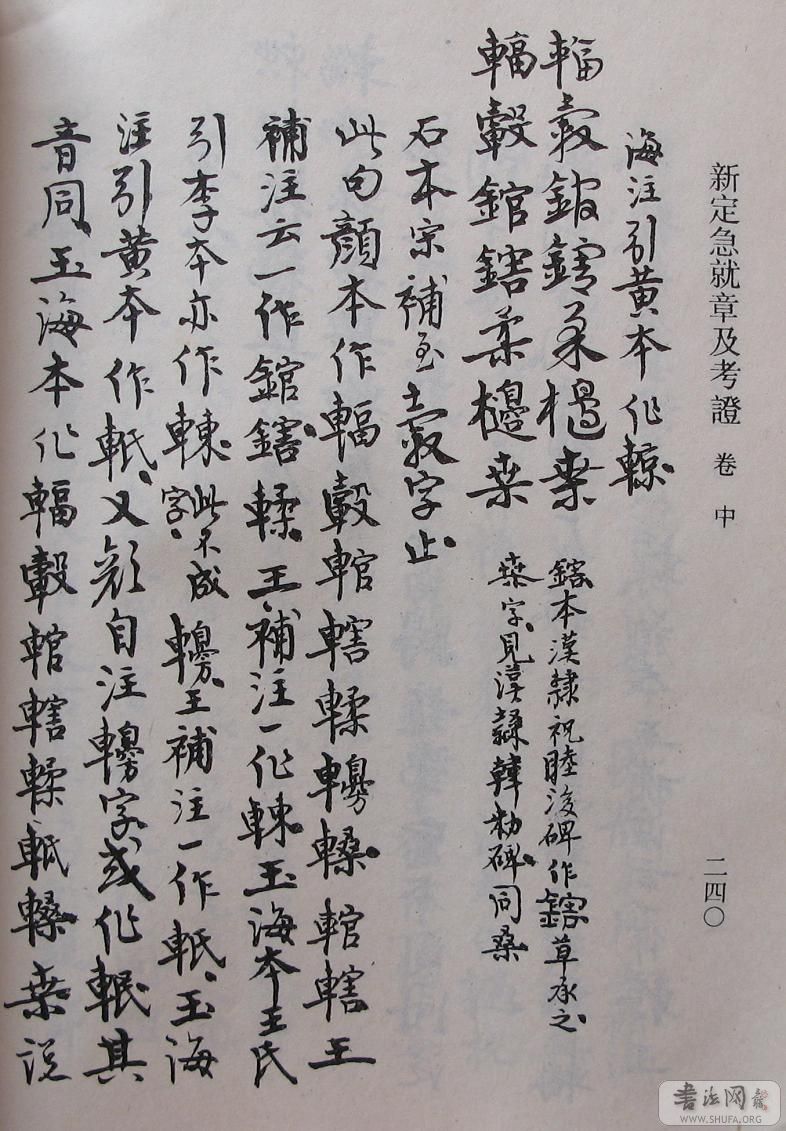 新定急就章及考證 卷中 二四〇
海注引黃本作轅
輻轂錧鎋柔櫋桒 鎋本漢隸祝睦後碑作鎋草承之
輻轂錧鎋柔櫋桒 桒字見漢隸韓勑碑同桑
石本宋補至轂字止
此句顏本作輻轂輨轄輮轑轅輨轄王
補注云一作錧鎋輮王補注一作㯥玉海本王氏
引李本亦作㯥此不成字王補注一作軝玉海
注引黃本作軝又顏自注字或作輾其
音同玉海本作輻轂輨轄輮軝桒說
書法网
WWW.SHUFA.ORG